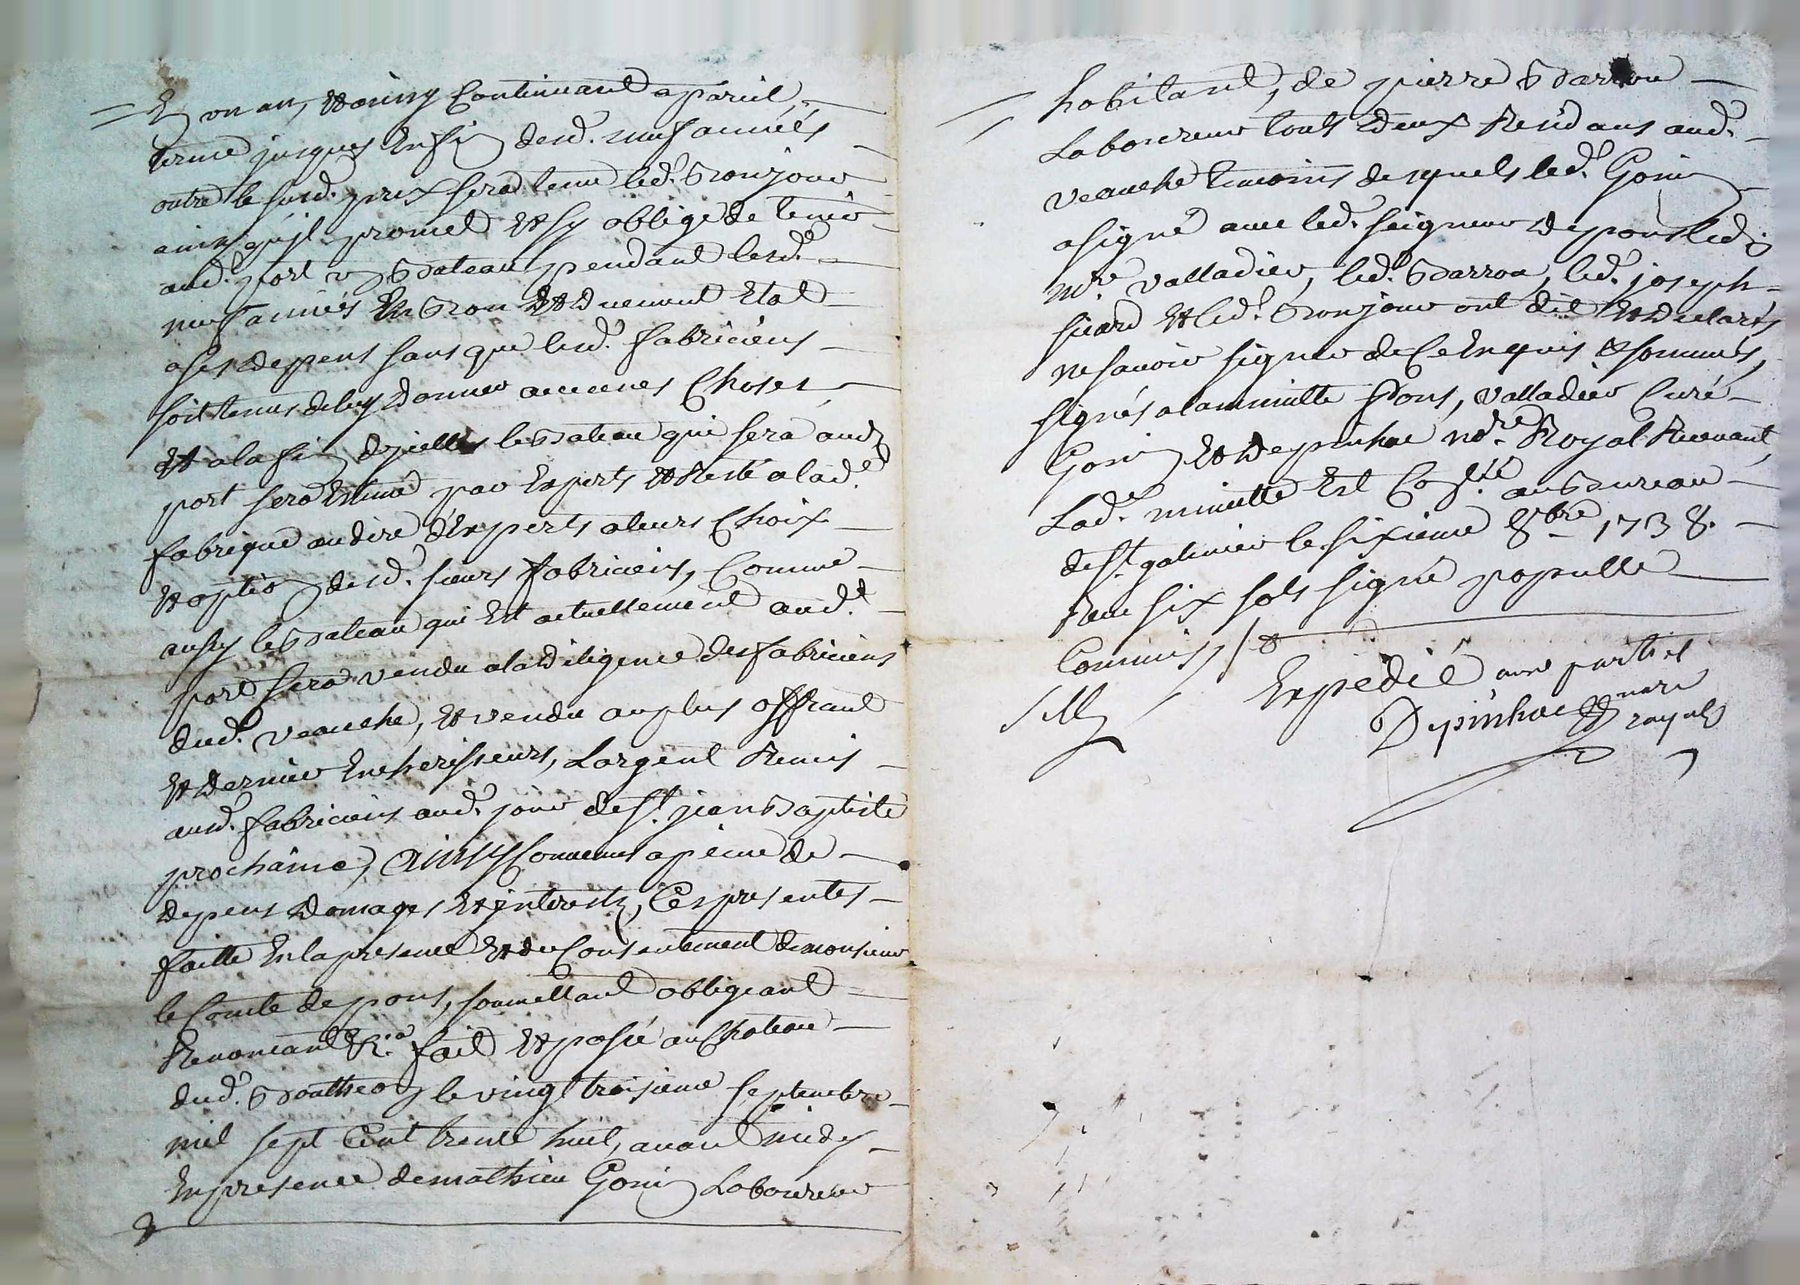 En un an, et ainsy continuant a pareil,
terme jusques en fin desd. neuf années
outre le susd. prix sera tenu led. Bonjour
ainsy qu'jl promet et sy oblige de tenir
aud. port un Bateau pendant lesd.
neuf années en Bon et duement Etat
a ses depens sans que lesd. fabriciens
soit tenus de luy donner aucunes choses,
et a la fin d'jcelles le Bateau qui sera aud.
port sera Estimé par Experts et Resté a lad.
fabrique au dire d'Experts a leurs choix
et option desd. sieurs fabriciens, comme
aussy le Bateau qui Est actuellement aud.
port sera vendu a la diligence des fabriciens
dud. veauche, et vendu au plus offrant
et dernier Encherisseurs, Largent Remis
ausd. fabriciens aud. jour de St. jean Baptiste
prochaine, Ainsy convenus a peine de
depens domages et jnterests, Ces presentes
faitte En la presence et du Consentement de monsieur
le Comte de pons, soumettant obligeant
Renonçant &.a fait et passé au Chateau
dud. Boutheon le vingt troisieme septembre
mil sept Cent trente huit, avant midy
En presence de mathieu Gonin Laboureur
habitant, de pierre Barrou
Laboureur touts deux Residans aud.
veauche temoins desquels led. Gonin
a signé avec led. seigneur de pons led.
mre. valladier, led. Barrou, led. joseph
sicard et led. Bonjour ont dit et declarés
ne savoir signer de ce Enquis et sommés,
signés a la minutte Pons, valladier Curé
Gonin et Depinhac nore. Royal Recevant,
Lad. minutte Est Conllée au Bureau
de St. galmier le sixieme 8bre 1738.
Reçu six sols signé populle
Commis /.
Expedié aux parties
Depinhac nore
royal